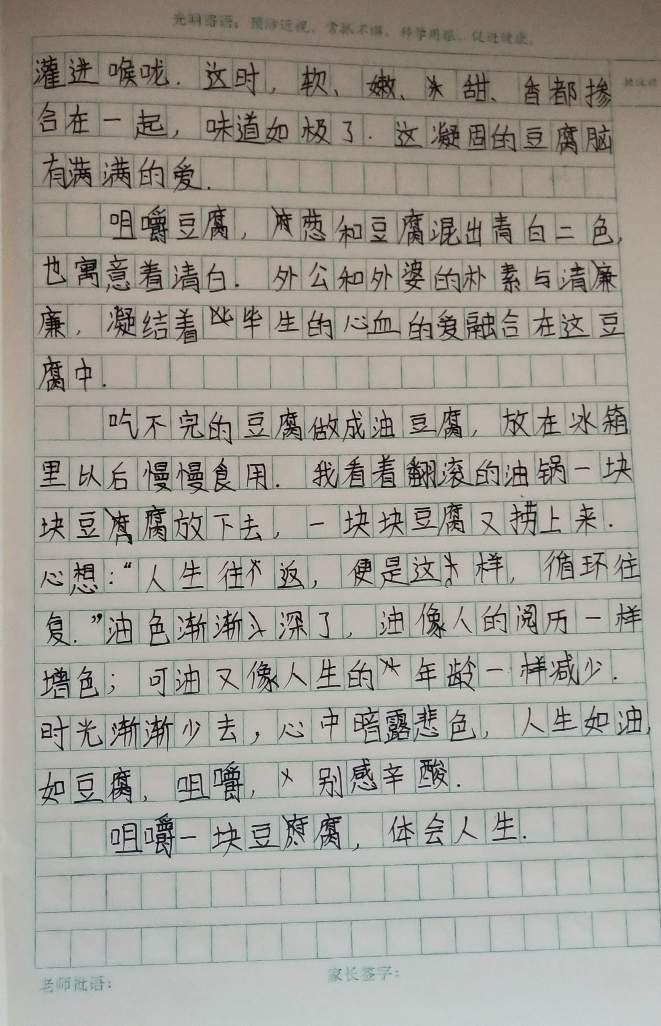 光明密语：预防近视，常抓不懈，科学用眼，促进健康。
灌进喉咙.这时,软、嫩、甜、香都掺
合在一起,味道如极了.这凝固的豆腐脑
有满满的爱.
咀嚼豆腐,葱和豆腐混出青白二色,
也寓意着清白.外公和外婆的朴素与清
廉,凝结着毕生的心血的爱融合在这豆
腐中.
吃不完的豆腐做成油豆腐,放在冰箱
里以后慢慢食用.我看着翻滚的油锅一块
块豆腐放下去,一块块豆腐又捞上来.
心想:“人生往返,便是这样,循环往
复.”油色渐渐深了,油像人的阅历一样
增色;可油又像人生的年龄一样减少.
时光渐渐少去,心中暗露悲色,人生如油,
如豆腐,咀嚼,别感辛酸.
咀嚼一块豆腐,体会人生.
老师批语：
家长签字：